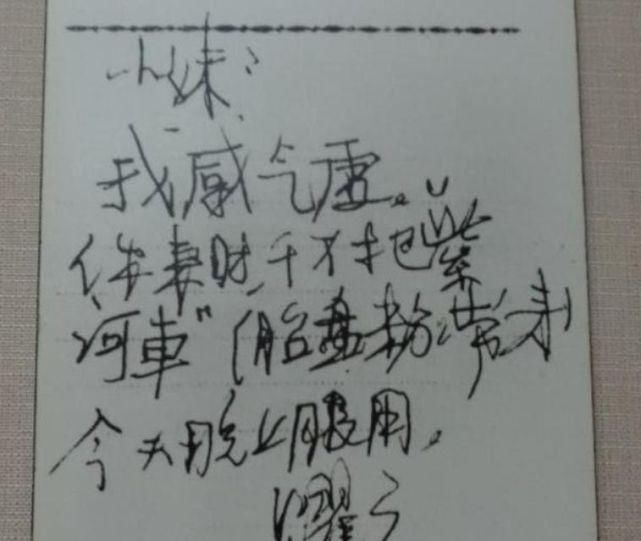 小妹：
我感气虚。
传妻时，千万把“紫
河車”（胎盘粉）带来，
今天晚上服用。